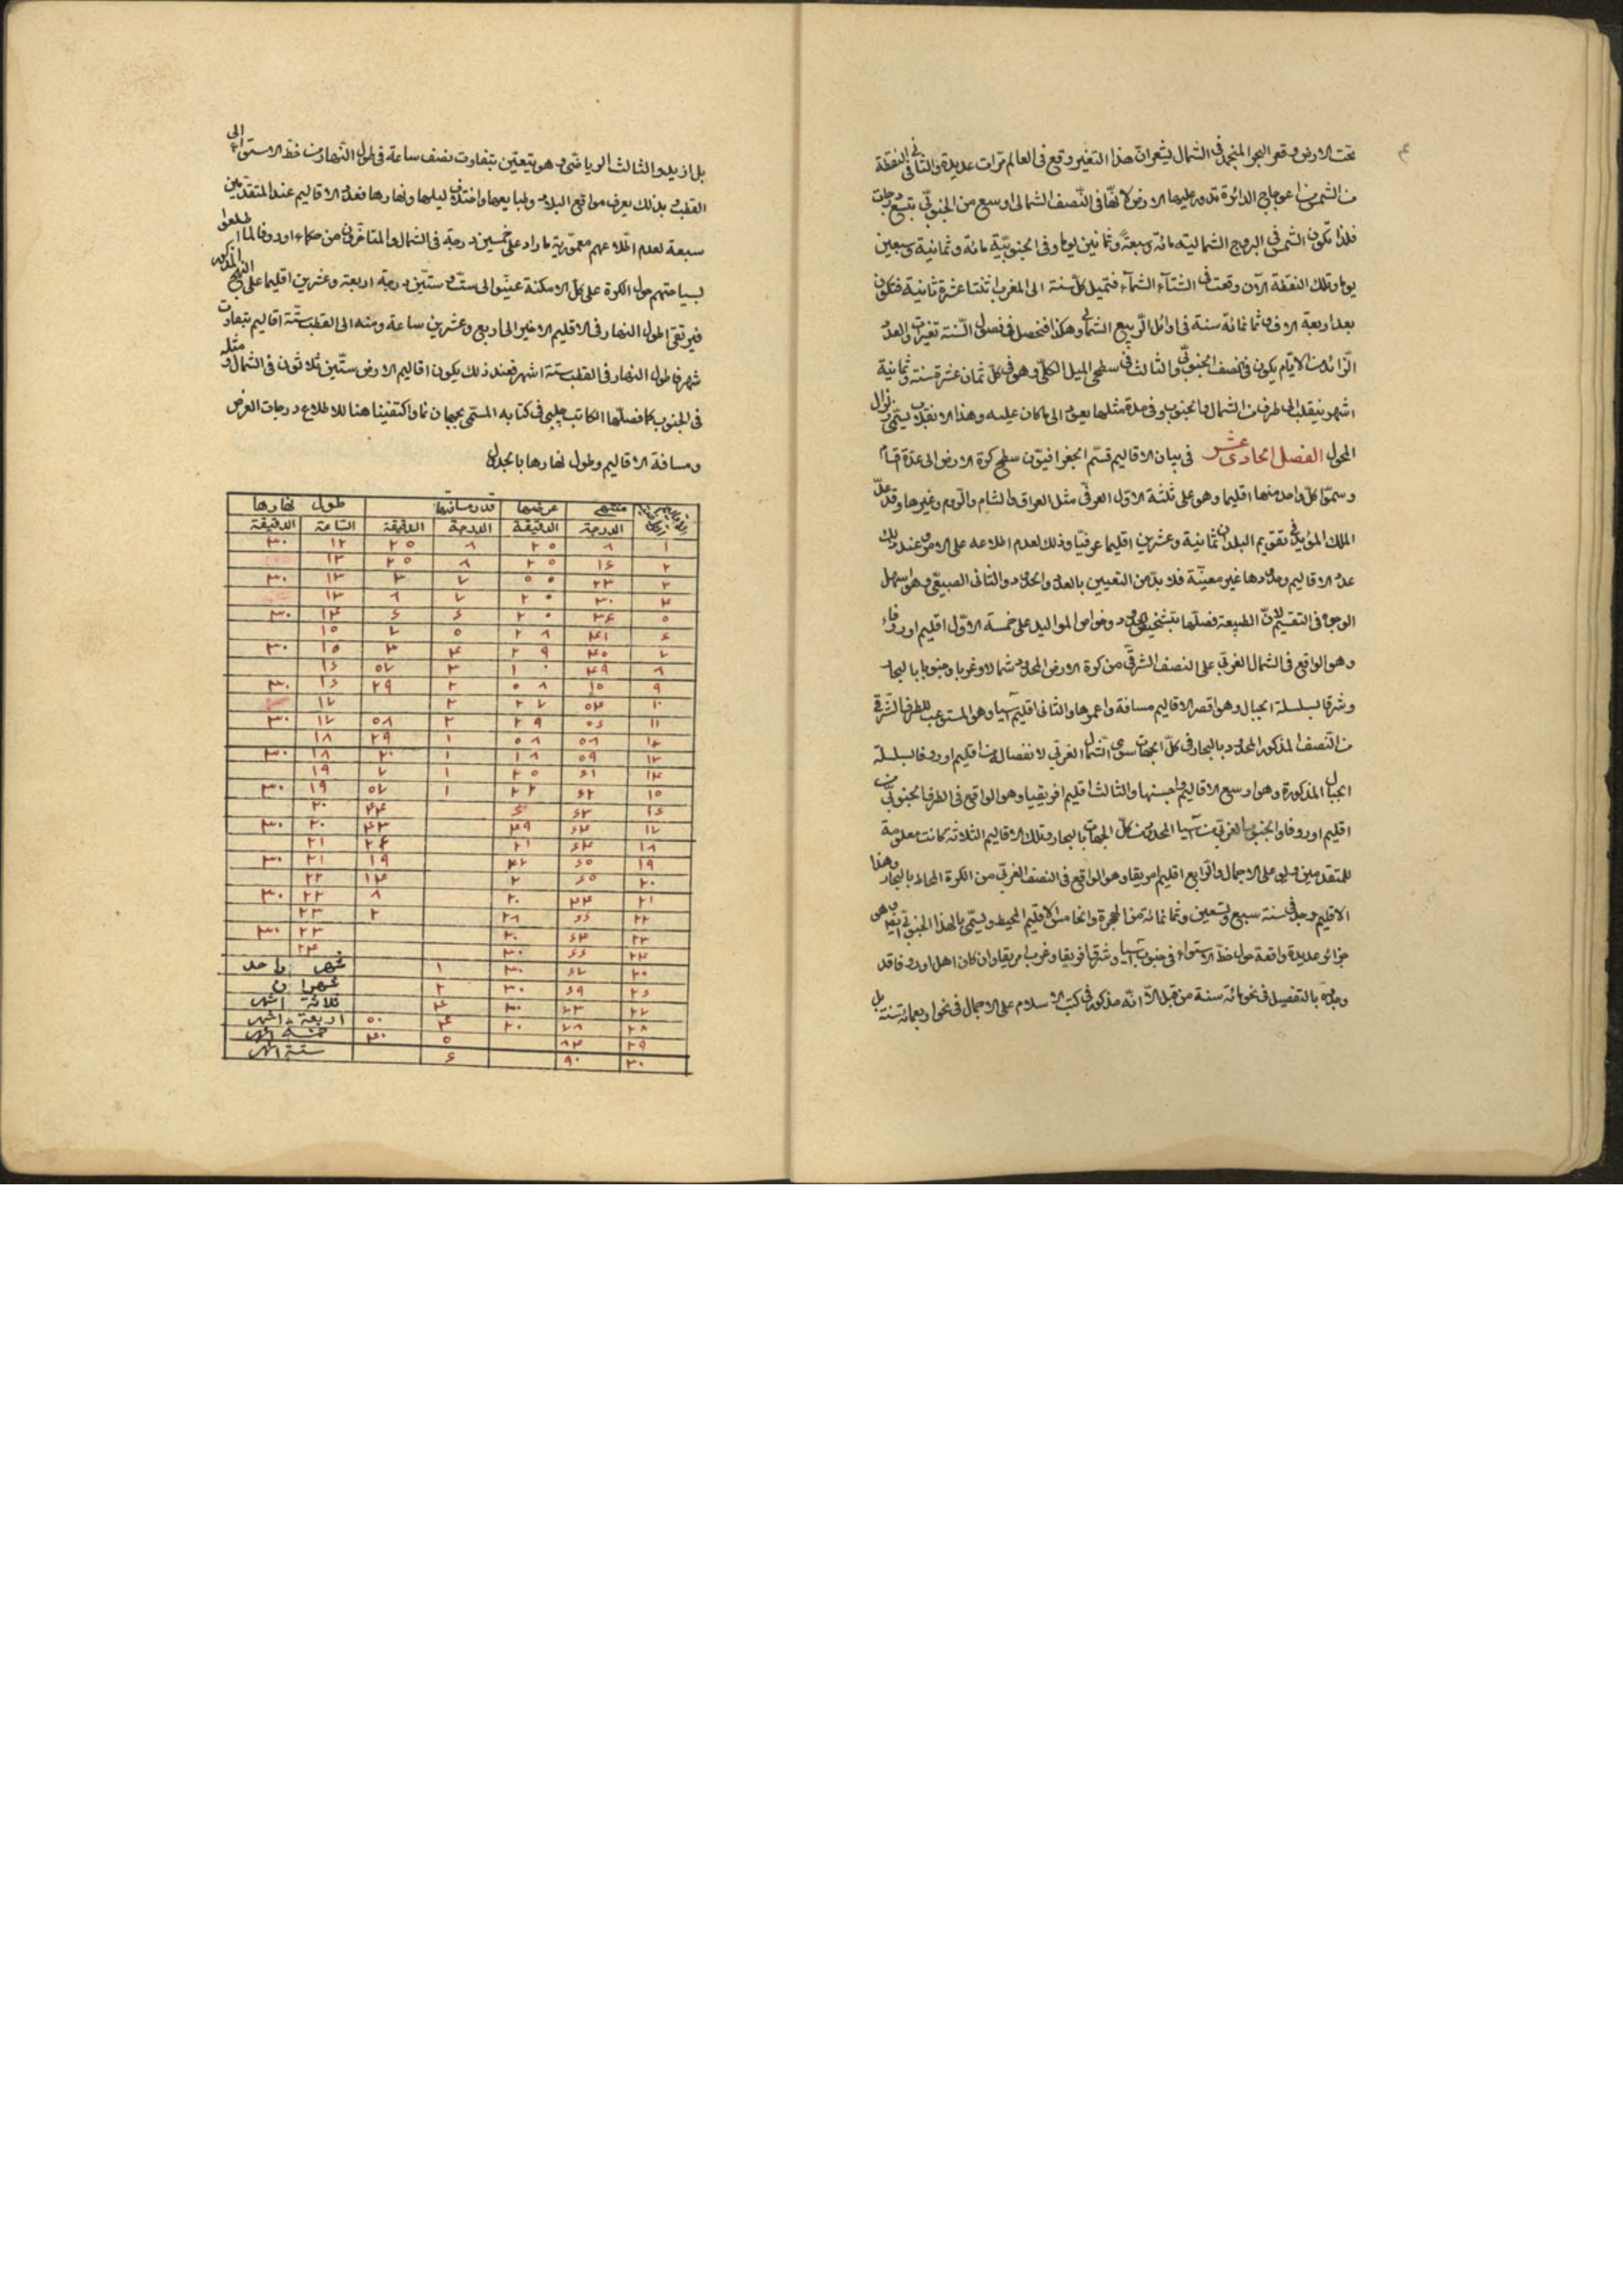 تحت الارض وقعر البحر المنجمد فى الشمال يشعر ان هذا التغير وقع فى العالم مرات عديدة والثانى فى النقطة
من الشمس اعوجاج الدائرة تدور عليها الارض لانها فى النصف الشمالى اوسع من الجنوبى بتسع درجات
فلذا تكون الشمس فى البروج الشمالية مائة وسبعة وثمانين يوما وفى الجنوبية مائة وثمانية وسبعين
يوما وتلك النقطة الآن وقعت فى الشتاء الشتاء فتميل كل سنة الى المغرب اثنتا عشرة ثانية فتكون
بعد اربعة الاف وثمانمائة سنة فى اوائل الربيع الشمالى وهكذا فتحصل فى فصول السنة تغيرات والعدد
الزائد من الايام يكون فى نصف الجنوبى والثالث فى سطحى الميل الكلى وهو فى كل ثمان عشرة سنة وثمانية
اشهر ينقلب الى طرف من الشمال والجنوب وفى مدة مثلها يعود الى ما كان عليه وهذا الانقلاب يسمى زوال
المحول الفصل الحادى عشر فى بيان الاقاليم قسم الجغرافيون سطح كرة الارض الى عدة اقسام
وسموا كل واحد منها اقليما وهو على ثلثة الاول العرفى مثل العراق والشام والروم وغيرها وقد عد
الملك المؤيد فى تقويم البلدان ثمانية وعشرين اقليما عرفيا وذلك لعدم اطلاعه على الامور عند ذلك
عدد الاقاليم وحدودها غير معينة فلا بد من التعيين بالعدد والحدود والثانى الطبيعى وهو اسهل
الوجوه فى التقسيم لان الطبيعة فصلها بتشخيص الحدود وخواص المواليد على خمسة الاول اقليم اوروفاء
وهو الواقع فى الشمال الغربى على النصف الشرقى من كرة الارض المحدود شمالا وغربا وجنوبا بالبحار
وشرقا بسلسلة الجبال وهو اقصر الاقاليم مسافة واعمرها والثانى اقليم آسيا وهو المستوعب للطرف الشرقى
من النصف المذكور المحدود بالبحار فى كل الجهات سوى الشمال الغربى لانفصاله من اقليم اوروفا بسلسلة
الجبال المذكورة وهو اوسع الاقاليم واحسنها والثالث اقليم افريقيا وهو الواقع فى الطرف الجنوبى من
اقليم اوروفا والجنوب الغربى من آسيا المحدود من كل الجهات بالبحار وتلك الاقاليم الثلاثة كانت معلومة
للمتقدمين ولو على الاجمال والرابع اقليم امريقا وهو الواقع فى النصف الغربى من الكرة المحاط بالبحار وهذا
الاقليم وجد فى سنة سبع وتسعين وثمانمائة من الهجرة والخامس الاقليم المحيط ويسمى بالهند الجنوبى ايضا وهو
جزائر عديدة واقعة حول خط الاستواء فى جنوب آسيا وشرق افريقا وغرب امريقا وان كان اهل اوروفا قد
وجدوه بالتفصيل فى نحو مائة سنة من قبل الا انه مذكور فى كتب الاسلام على الاجمال فى نحو اربعمائة سنة بل
بل ازيد والثالث الرياضى وهو يتعين بتفاوت نصف ساعة فى طول النهار من خط الاستواء الى
القطب وبذلك يعرف مواقع البلاد وطبايعها واختلاف ليلها ونهارها فعدد الاقاليم عند المتقدمين
سبعة لعدم اطلاعهم معمورية ما زاد على خمسين درجة فى الشمال والمتاخرون من حكماء اوروفا لما اطلعوا
بسياحتهم حول الكرة على كل الامكنة عينوا الى ست وستين درجة اربعة وعشرين اقليما على النهج المذكور
فيرتقى طول النهار فى الاقليم الاخير الى اربع وعشرين ساعة ومنه الى القطب ستة اقاليم بتفاوت
شهر فاطول النهار فى القطب ستة اشهر فعند ذلك يكون اقاليم الارض ستين ثلاثون فى الشمال ومثله
فى الجنوب كما فصلها الكاتب چلبى فى كتابه المسمى بجهان نما واكتفينا هنا للاطلاع درجات العرض
ومسافة الاقاليم وطول نهارها بالجدول
منتهى عرضها قدر مسافتها طول نهارها
الدرجة الدقيقة الدرجة الدقيقة الساعة الدقيقة
١ ٨ ٢٥ ٨ ٢٥ ١٢ ٣٠
٢ ١٦ ٢٥ ٨ ٢٥ ١٣
٣ ٢٣ ٥٠ ٧ ٣ ١٣ ٣٠
٤ ٣٠ ٢٠ ٧ ٨ ١٣
٥ ٣٦ ٢٠ ٦ ٦ ١٤ ٣٠
٦ ٤١ ٢٨ ٥ ٧ ١٥
٧ ٤٥ ٢٩ ٤ ٣ ١٥ ٣٠
٨ ٤٩ ١٠ ٣ ٥٧ ١٦
٩ ١٥ ٥٨ ٢ ٢٩ ١٦ ٣٠
١٠ ٥٤ ٢٧ ٢ ١٧
١١ ٥٦ ٢٩ ٢ ٥٨ ١٧ ٣٠
١٢ ٥٨ ٥٨ ١ ٢٩ ١٨
١٣ ٥٩ ١٨ ١ ٢٠ ١٨ ٣٠
١٤ ٦١ ٢٥ ١ ٧ ١٩
١٥ ٦٢ ٢٢ ١ ٥٧ ١٩ ٣٠
١٦ ٦٢ ٦ ٤٤ ٢٠
١٧ ٦٤ ٤٩ ٤٣ ٢٠ ٣٠
١٨ ٦٤ ٢١ ٢٤ ٢١
١٩ ٦٥ ٤٢ ١٩ ٢١ ٣٠
٢٠ ٦٥ ٢ ١٤ ٢٢
٢١ ٢٠ ٨ ٢٢ ٣٠
٢٢ ٦٦ ٢٨ ٢ ٢٣
٢٣ ٦٤ ٣٠ ٢٣ ٣٠
٢٤ ٦٦ ٣٠ ٢٤
٢٥ ٦٧ ٣٠ ١ شهر واحد
٢٦ ٦٩ ٣٠ ٢ شهران
٢٧ ٧٣ ٣٠ ٣ ثلاثة اشهر
٢٨ ٧٨ ٣٠ ٤ ٥٠ اربعة اشهر
٢٩ ٨٤ ٥ ٣٠ خمسة اشهر
٣٠ ٩٠ ٦ ستة اشهر